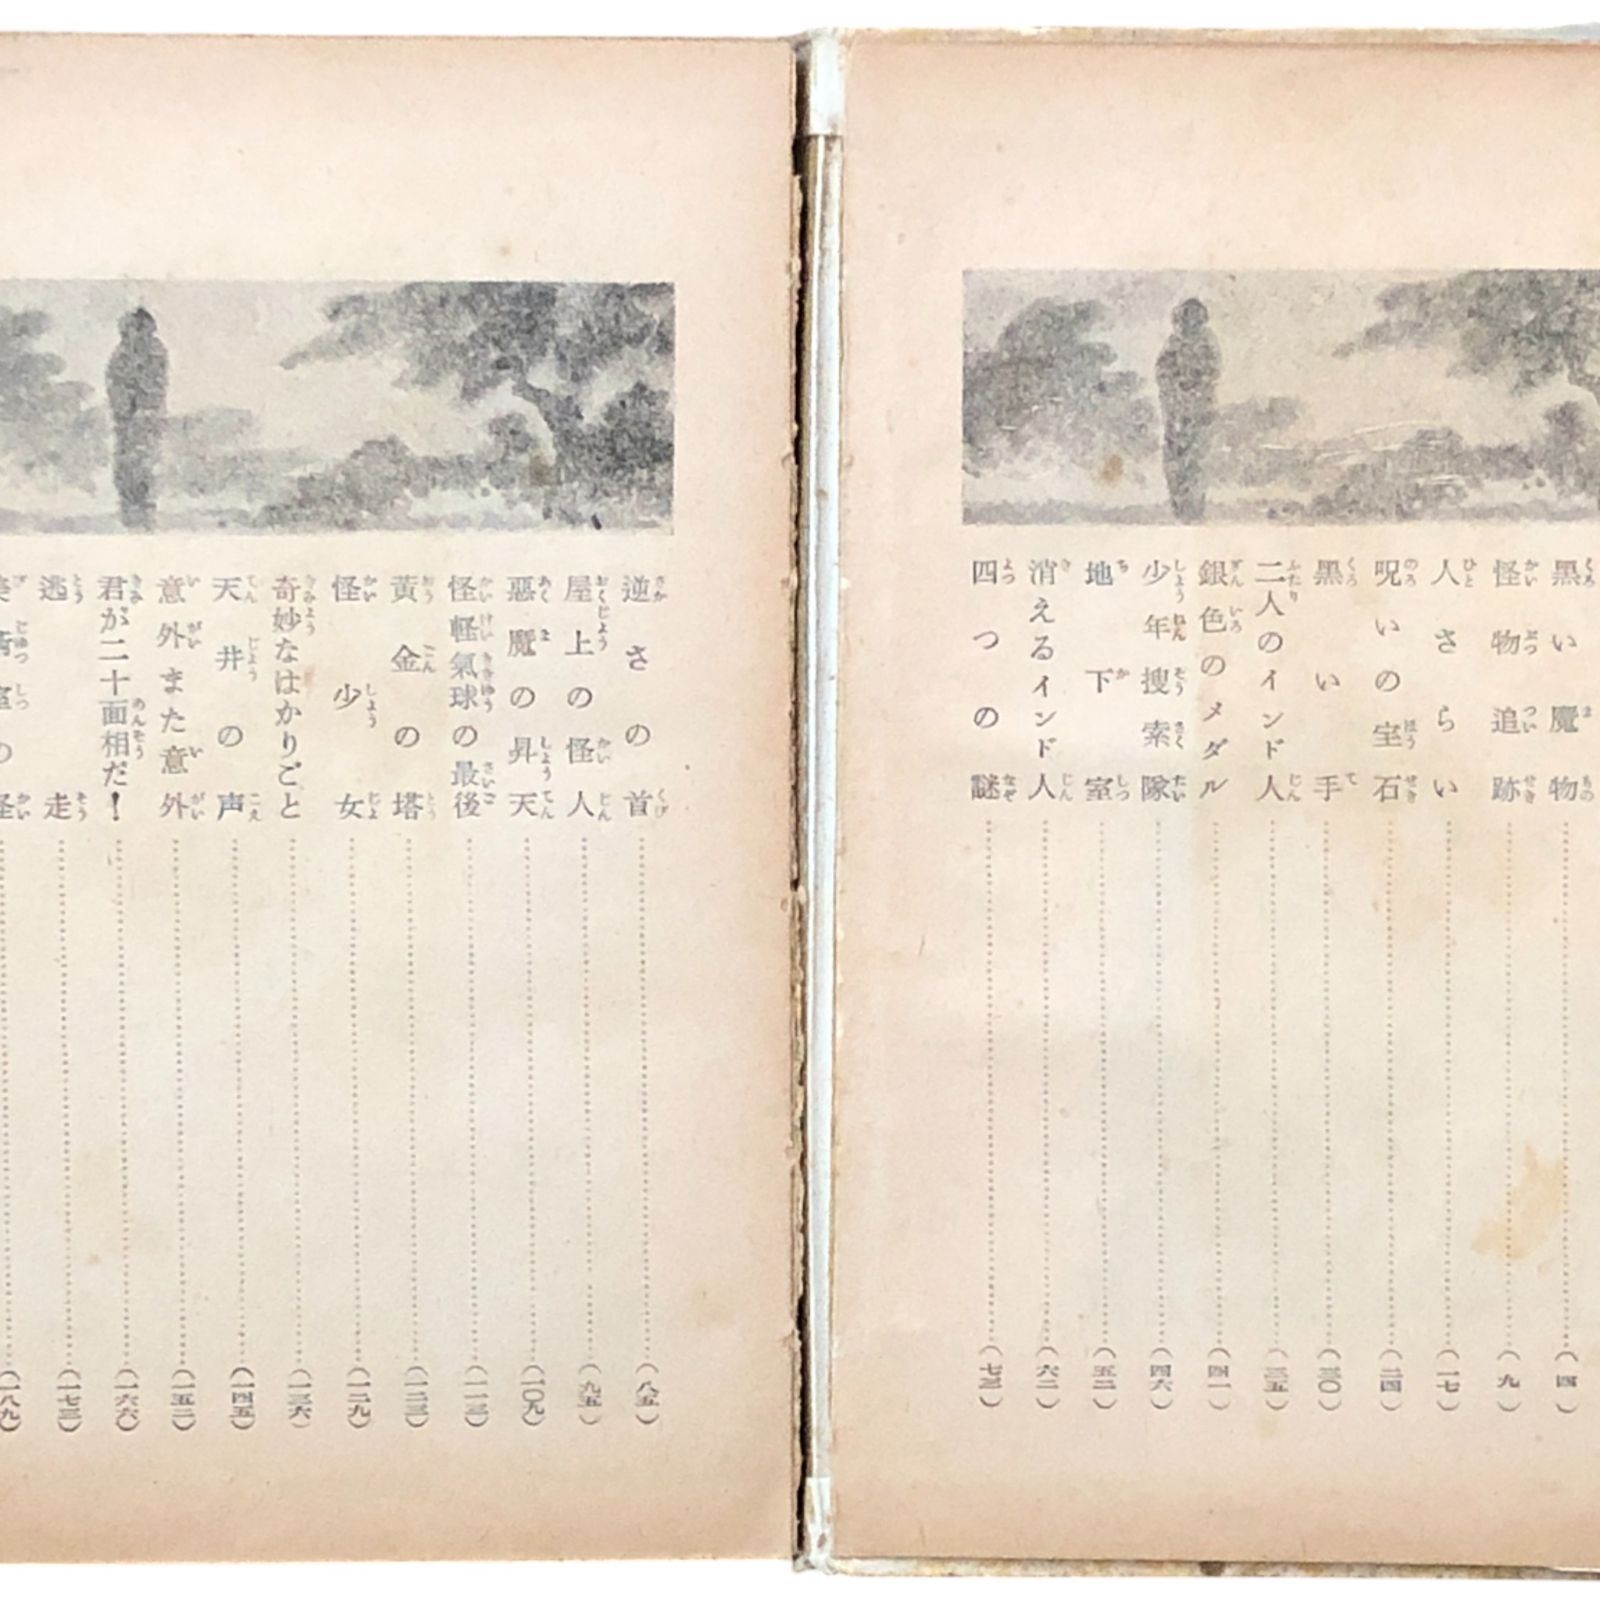 黒い魔物……(四)
怪物追跡……(九)
人さらい……(一七)
呪いの宝石……(二四)
黒い手……(三〇)
二人のインド人……(三五)
銀色のメダル……(四一)
少年捜索隊……(四六)
地下室……(五二)
消えるインド人……(六二)
四つの謎……(七三)
逆さの首……(八五)
屋上の怪人……(九五)
惡魔の昇天……(一〇九)
怪軽氣球の最後……(一一三)
黄金の塔……(一二三)
怪少女……(一二九)
奇妙なはかりごと……(一三六)
天井の声……(一四五)
意外また意外……(一五二)
君が二十面相だ!……(一六六)
逃走……(一七三)
美術室の怪……(一八九)